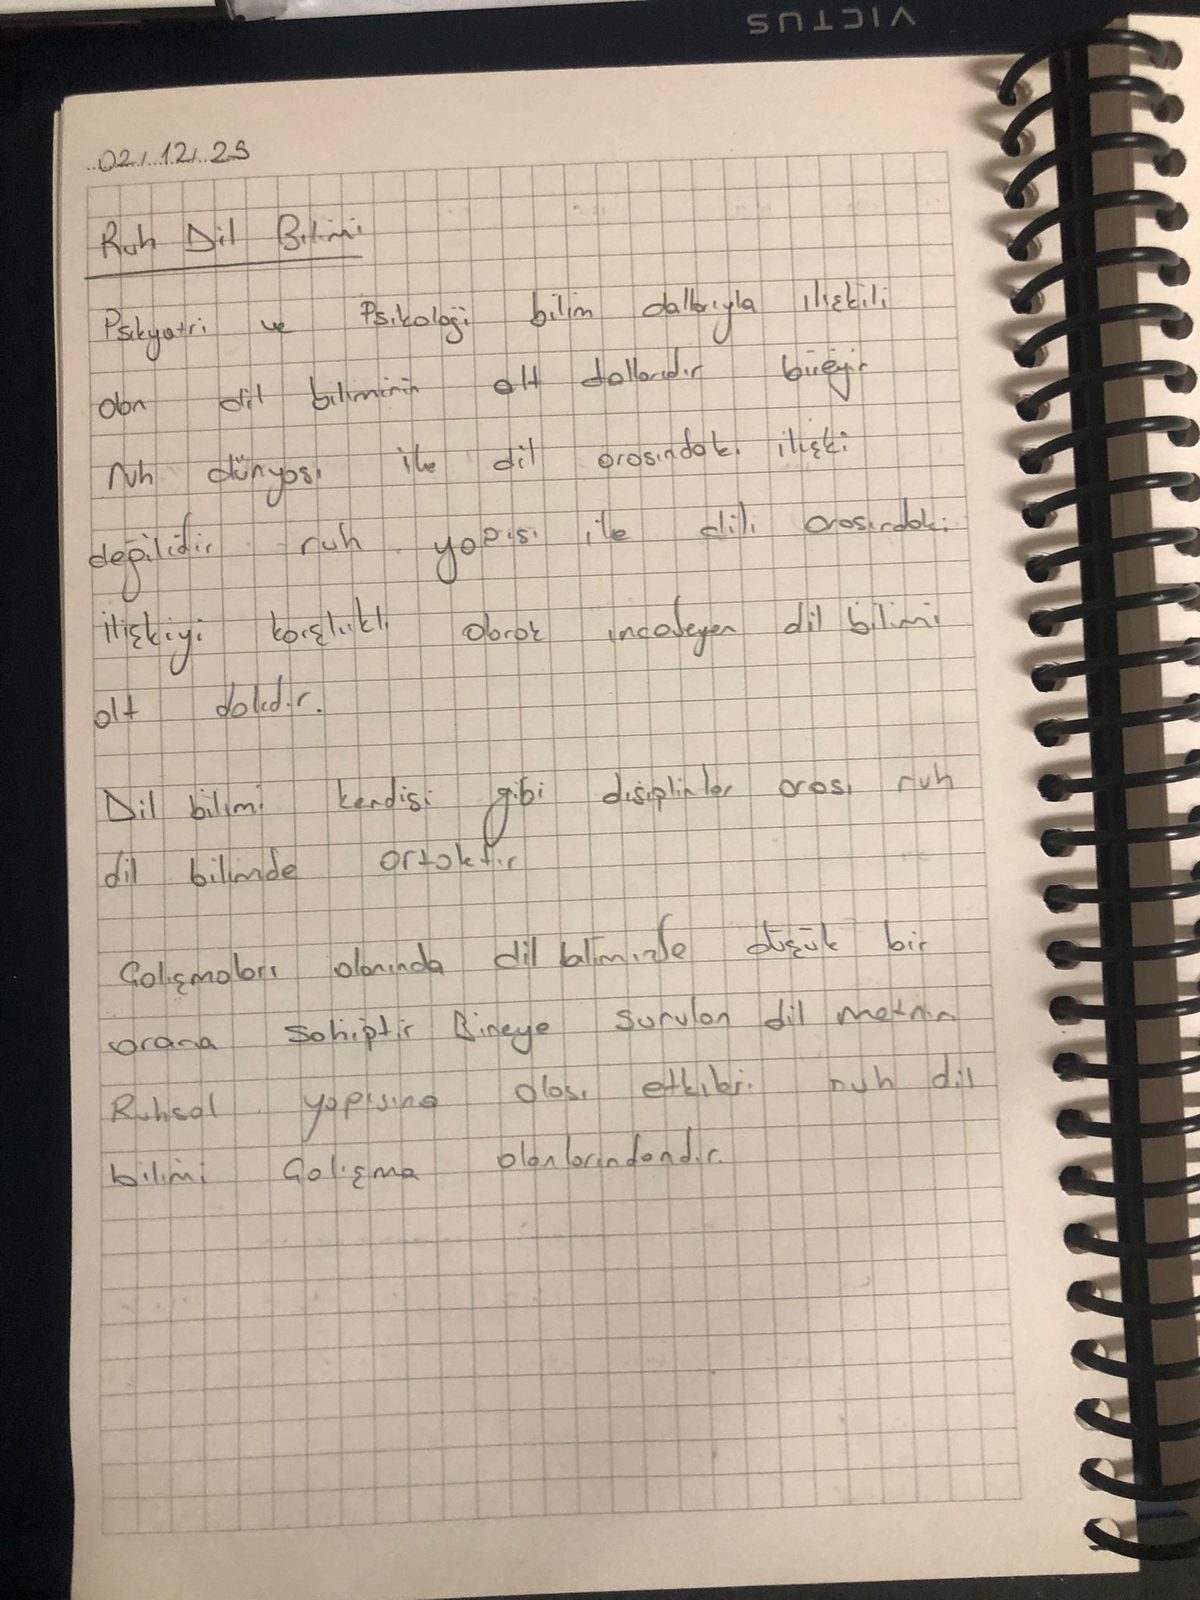 VICTUS
02/12/25
Ruh Dil Bilimi
Psikyatri ve Psikoloji bilim dallarıyla ilişkili
olan dil biliminin alt dallarıdır bireyin
ruh dünyası ile dil arasındaki ilişki
değilidir ruh yapısı ile dili arasındaki
ilişkiyi karşılıklı olarak inceleyen dil bilimi
alt dalıdır.
Dil bilimi kendisi gibi disiplinler arası ruh
dil bilimde ortaktır
Çalışmaları alanında dil biliminde düşük bir
orana sahiptir Bireye sunulan dil metnin
Ruhsal yapısına olası etkileri ruh dil
bilimi Çalışma alanlarındandır.